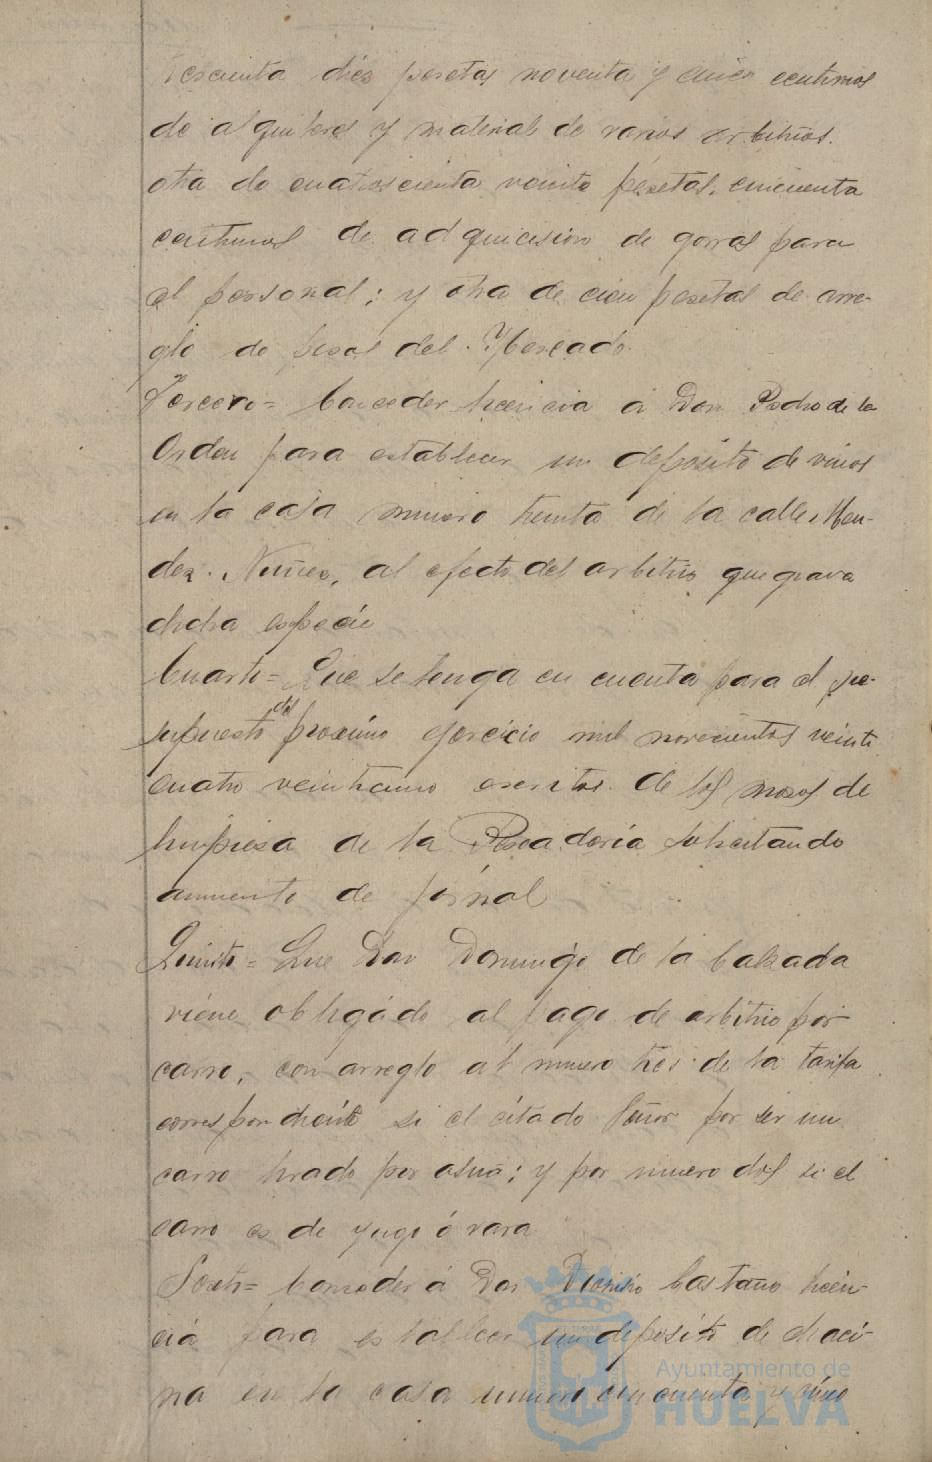 diez pesetas noventa y cinco centimos
de alquileres y material de varios arbitrios.
otra de cuatroscienta veinte pesetas, cincuenta
centimos de adquicision de gorras para
el personal; y otra de cien pesetas de arre-
glo de pesas del Mercado.
Tercero= Conceder licencia á Don Pedro de la
Orden para establecer un deposito de vinos
en la casa numero treinta de la calle Men-
dez Nuñez, al efecto del arbitrio que grava
dicha especie
Cuarto= Que se tenga en cuenta para el pre-
supuesto del proximo ejercicio mil novecientos veinte
cuatro veinticinco escritos de los mozos de
limpiesa de la Pescaderia solicitando
aumento de jornal
Quinto= Que Don Domingo de la Calzada
viene obligado al pago de arbitrio por
carro, con arreglo al numero tres de la tarifa
correspondiente si el citado Señor por ser un
carro tirado por asno; y por numero dos si el
carro es de yugo ó vara
Sexto= Conceder á Don Dionisio Castaño licen-
cia para establecer un deposito de chaci-
na en la casa numero cincuenta y cinco
Ayuntamiento de
HUELVA